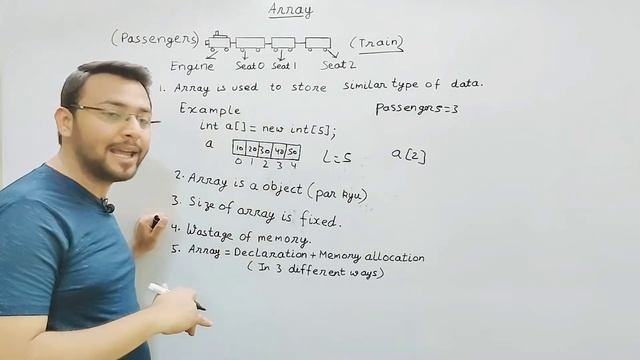 Array
(Passengers) (Train)
Engine Seat 0 Seat 1 Seat 2
1. Array is used to store similar type of data.
Example Passengers=3
int a[]=new int[5];
a 10 20 30 40 50 L=5 a[2]
0 1 2 3 4
2. Array is a object (par kyu)
3. Size of array is fixed.
4. Wastage of memory.
5. Array = Declaration + Memory allocation
(In 3 different ways)